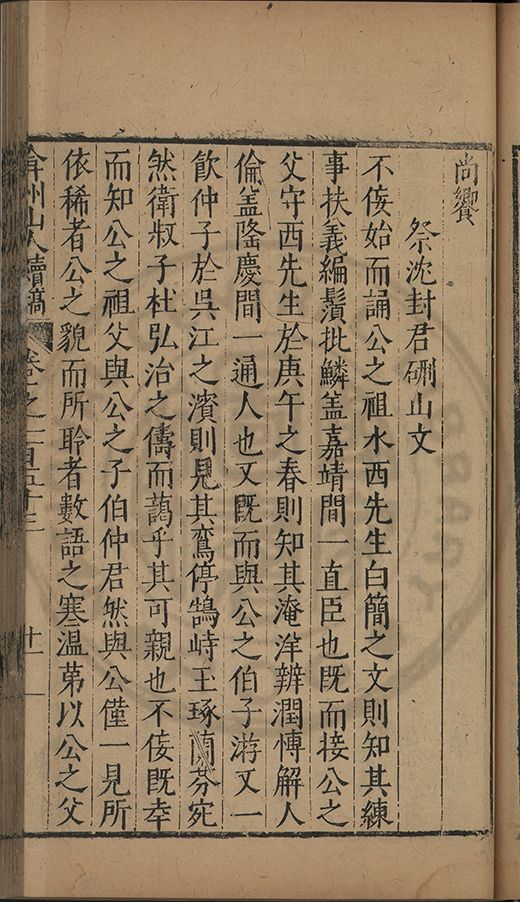 尚饗
祭沈封君𥔲山文
不佞始而誦公之祖水西先生白簡之文則知其練
事扶義編鬚批鱗盖嘉靖間一直臣也既而接公之
父守西先生於庚午之春則知其淹洋辨潤愽解人
倫盖隆慶間一通人也又既而與公之伯子游又一
飲仲子於吳江之濱則見其鸞停鵠峙玉琢蘭芬宛
然衛叔子杜弘治之儔而藹乎其可親也不佞既幸
而知公之祖父與公之子伯仲君然與公僅一見所
依稀者公之貌而所聆者數語之寒温苐以公之父
弇州山人續稿 卷之一百五十三 十一